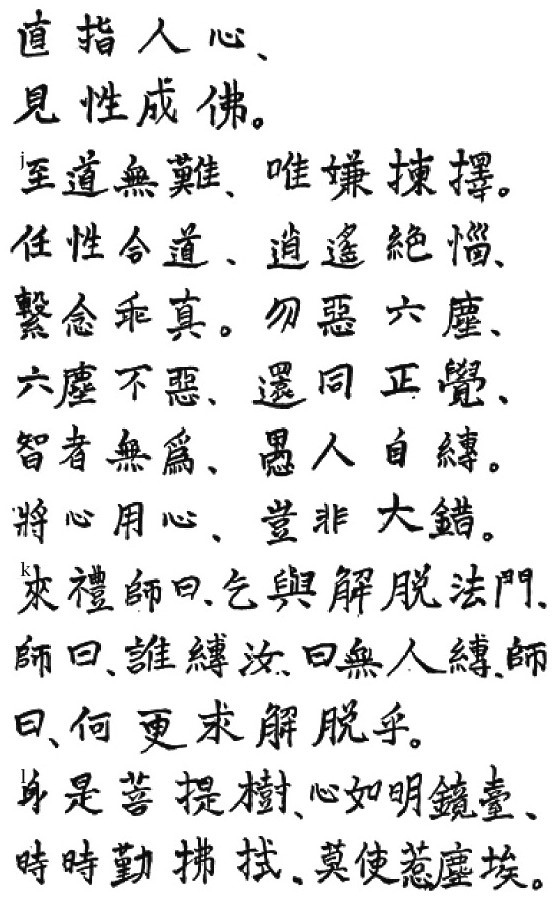 直指人心、
見性成佛。
j至道無難、唯嫌揀擇。
任性合道、逍遙絕惱、
繫念乖真。勿惡六塵、
六塵不惡、還同正覺、
智者無為、愚人自縛。
將心用心、豈非大錯。
k來禮師曰、乞與解脱法門、
師曰、誰縛汝、曰無人縛、師
曰、何更求解脱乎。
l身是菩提樹、心如明鏡臺、
時時勤拂拭、莫使惹塵埃。